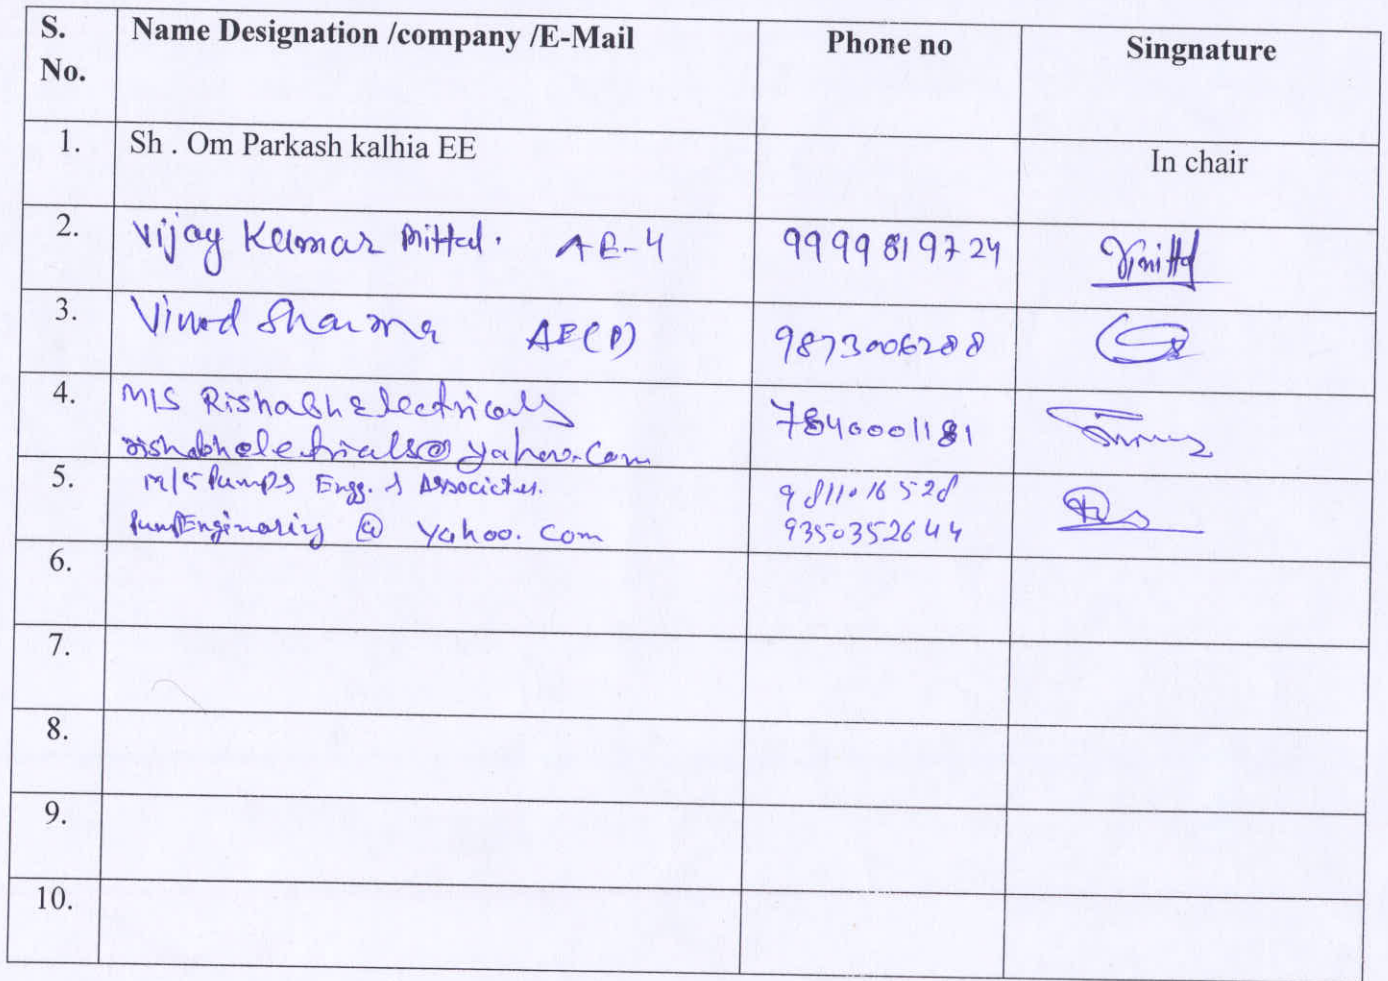 S. No. Name Designation /company /E-Mail Phone no Singnature
1. Sh . Om Parkash kalhia EE In chair
2. Vijay Kumar Mittal. AE-4 9999819724 Vmittal
3. Vinod Sharma AE(P) 9873006288
4. M/S Rishabh Electricals 7840001181
rishabheletricals@yahoo.com
5. M/S Pumps Engg. & Associates. 9811016528
PumpEnginering @ yahoo. com 9350352644
6.
7.
8.
9.
10.